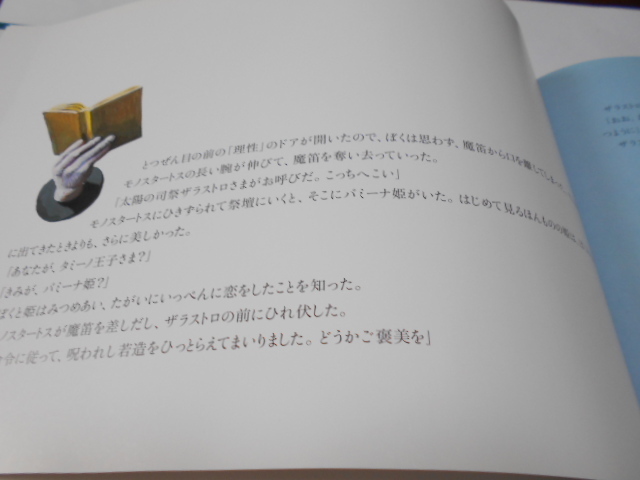 とつぜん目の前の「理性」のドアが開いたので、ぼくは思わず、魔笛から口を離してしまっ
モノスタートスの長い腕が伸びて、魔笛を奪い去っていった。
「太陽の司祭ザラストロさまがお呼びだ。こっちへこい」
モノスタートスにひきずられて祭壇にいくと、そこにパミーナ姫がいた。はじめて見るほんものの姫は、
に出てきたときよりも、さらに美しかった。
「あなたが、タミーノ王子さま?」
「きみが、パミーナ姫?」
ぼくと姫はみつめあい、たがいにいっぺんに恋をしたことを知った。
ノスタートスが魔笛を差しだし、ザラストロの前にひれ伏した。
令に従って、呪われし若造をひっとらえてまいりました。どうかご褒美を」
ザラス
「おお、
つように
ザラ